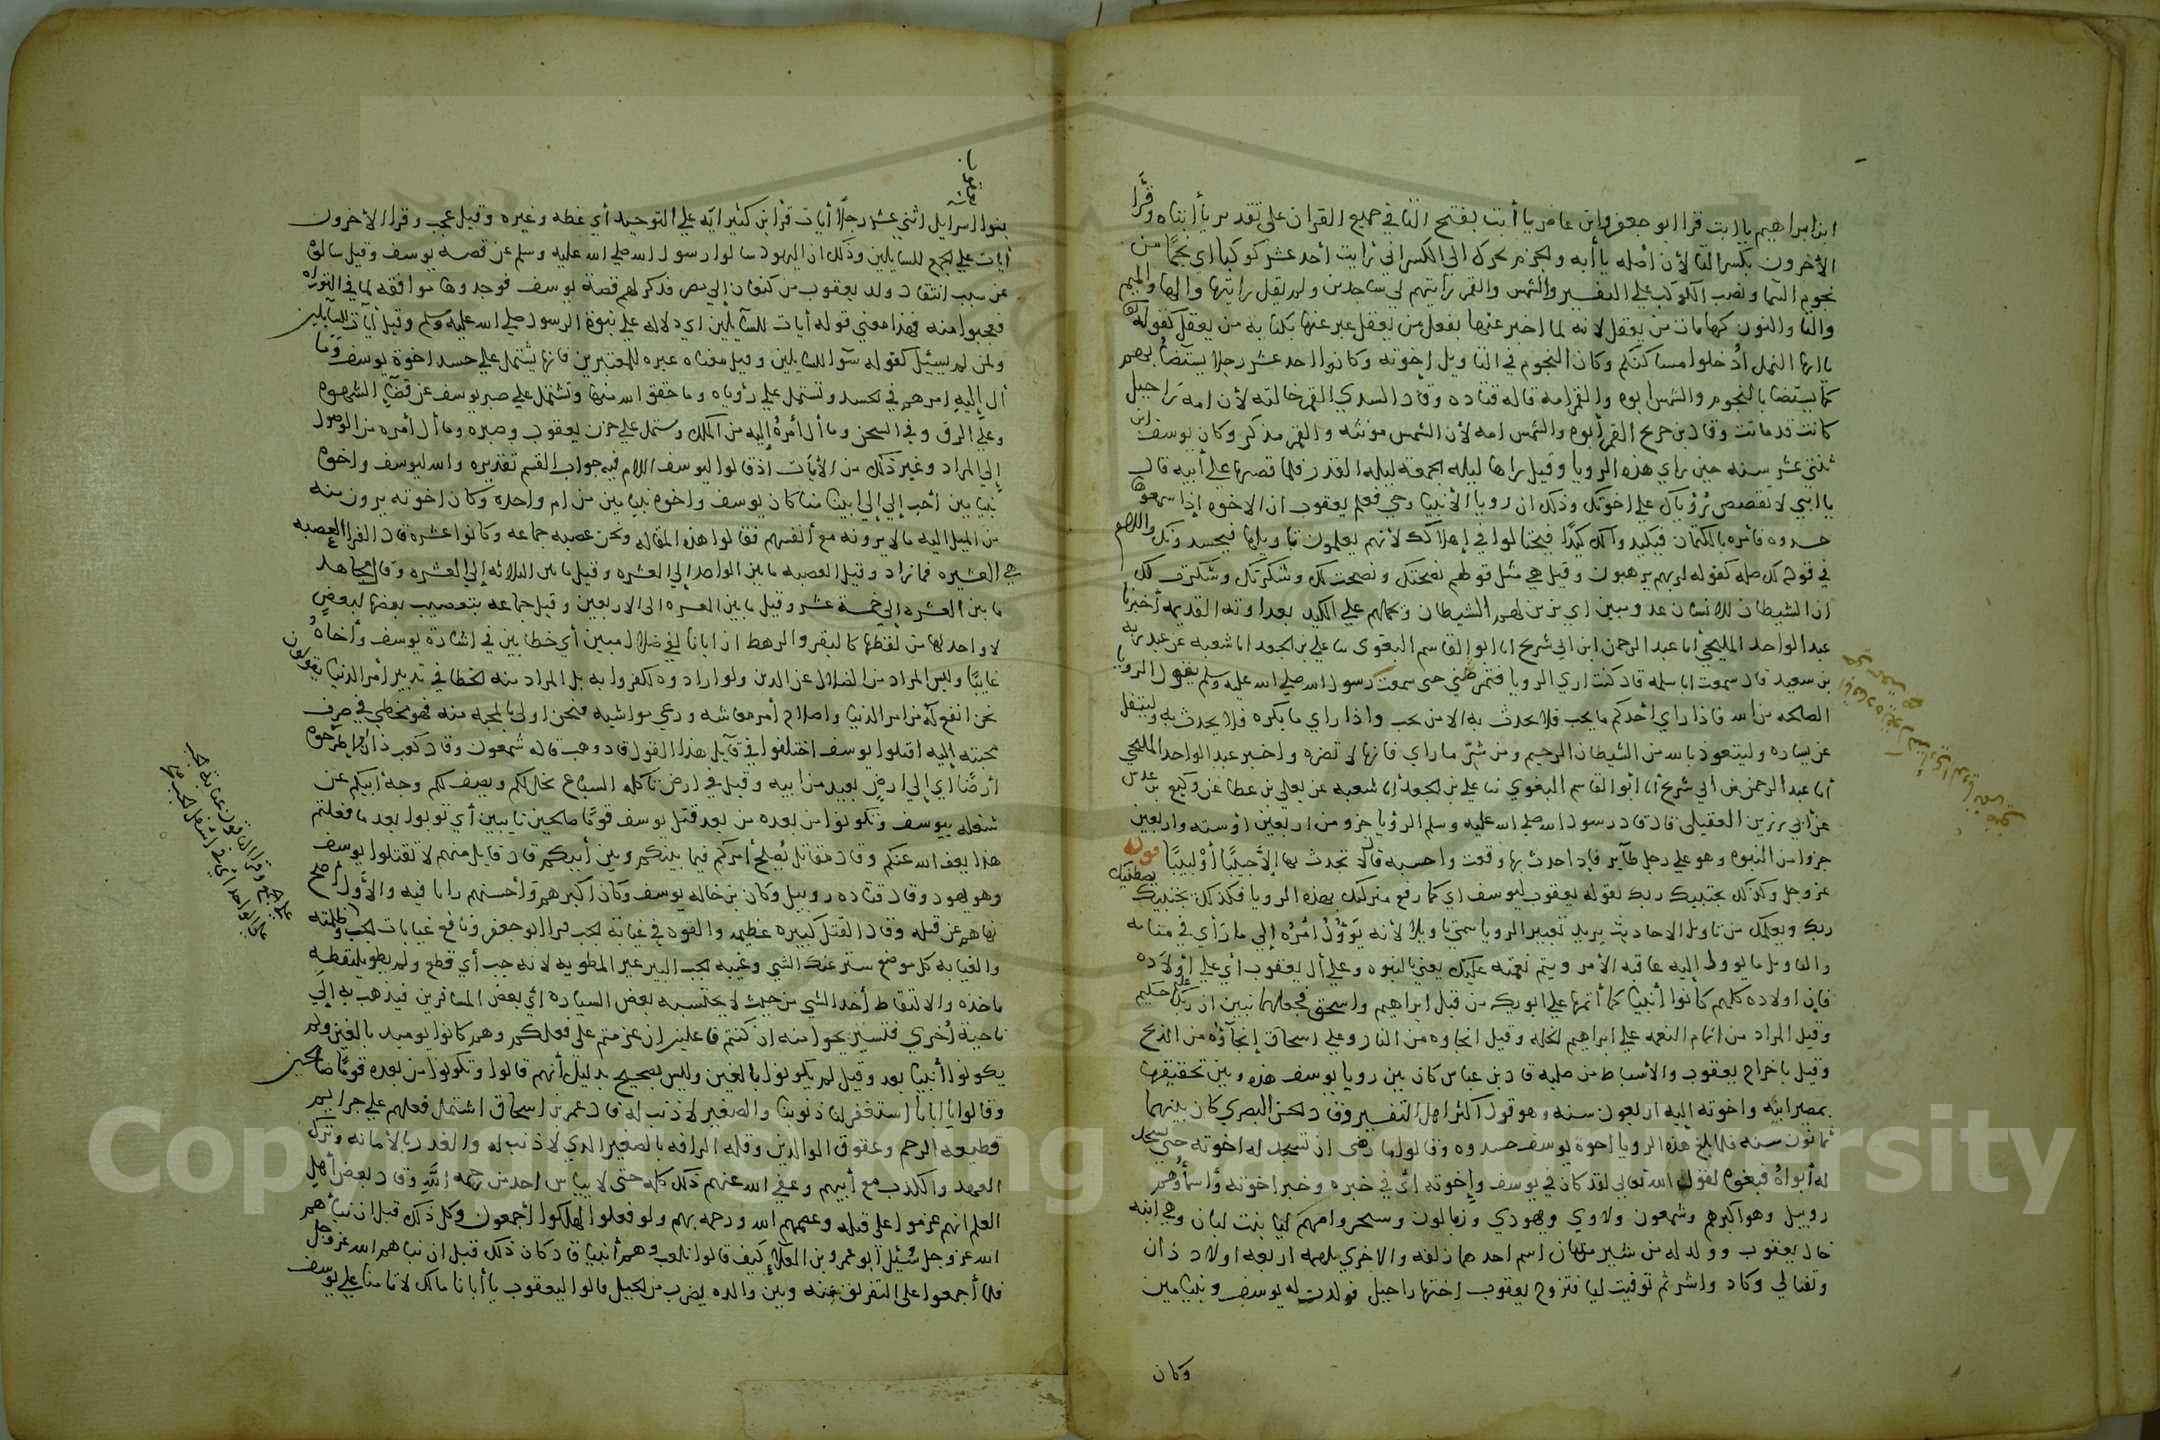 ابن ابراهيم يا ابت قرا ابو جعفر وابن عامر يا أبت بفتح التا في جميع القران على تقدير يا أبتاه وقرا
الأخرون بكسر التا لأن أصله يا أبه والجزم يحرك الى الكسر اني رايت أحد عشر كوكبا اي نجمًا من
نجوم السما ونصب الكوكب على التفسير والشمس والقمر رايتهم لي ساجدين ولم يقل رايتها والها والميم
واليا والنون كنايات من يعقل لانه لما اخبر عنها بفعل من يعقل عبر عنها بكناية من يعقل كقوله
يا ايها النمل ادخلوا مساكنكم وكان النجوم في التاويل إخوته وكانوا احد عشر رجلا يستضأ بهم
كما يستضا بالنجوم والشمس ابوه والقمر امه قاله قتاده وقال السدي القمر خالته لأن امه راحيل
كانت قد ماتت وقال بن جريج القمر أبوه والشمس امه لأن الشمس مونثه والقمر مذكر وكان يوسف ابن
ثنتي عشر سنه حين راي هذه الرويا وقيل راها ليله الجمعة ليله القدر فلما قصها على أبيه قال
يا ابني لا تقصص رؤياك على اخوتك وذلك ان رويا الأنبيا وحي فعلم يعقوب ان الاخوه إذا سمعوها
حسدوه فأمره بالكتمان فيكيدوا لك كيدًا فيحتالوا في إهلاكك لأنهم يعلمون تاويلها فيحسدونك واللام
في قوله لك صله كقوله لربهم يرهبون وقيل هي مثل قولهم نصحتك ونصحت لك وشكرتك وشكرت لك
ان الشيطان للانسان عدو مبين اي يزين لهم الشيطان ويحملهم على الكيد بعداوته القديمه أخبرنا
عبد الواحد المليحي أنا عبد الرحمن ابن ابي شريح انا ابو القاسم البغوي نا علي بن الجعد انا شعبه عن عبد ربه
بن سعيد قال سمعت ابا سلمه قال كنت اري الرويا فتمرضني حتى سمعت رسول الله صلى الله عليه وسلم يقول الرويا
الصالحه من الله فاذا راي أحدكم ما يحب فلا يحدث به الا من يحب واذا راي ما يكره فلا يحدث به وليتفل
عن يساره وليتعوذ بالله من الشيطان الرجيم ومن شر ما راي فانها لا تضره واخبر عبد الواحد المليحي
أنا عبد الرحمن بن أبي شريح أنا أبو القاسم البغوي نا علي بن الجعد أنا شعبه عن يعلى بن عطا عن وكيع بن عدس
عن أبي رزين العقيلي قال قال رسول الله صلى الله عليه وسلم الرؤيا جزو من اربعين أو سته واربعين
جزوا من النبوه وهو على رجل طآير فإذا حدث بها وقعت واحسبه قال لا تحدث بها إلا حبيبًا أو لبيبًا قوله
عز وجل وكذلك يجتبيك ربك بقوله يعقوب ليوسف اي كما رفع منزلتك بهذه الرويا فكذلك يجتبيك يصطفيك
ربك ويعلمك من تاويل الاحاديث يريد تعبير الرويا سمي تاويلا لأنه يؤؤل أمره إلى ما رأى في منامه
والتاويل ما يوول إليه عاقبه الأمر ويتم نعمته عليك يعني بالنبوه وعلى أل يعقوب أي على أولاده
فان اولاده كلهم كانوا أنبيا كما أتمها على ابويك من قبل ابراهيم واسحق فجعلهما نبيين ان ربك عليم حكيم
وقيل المراد من اتمام النعمه على ابراهيم الخله وقيل انجاوه من النار وعلى اسحاق إنجآؤه من الذبح
وقيل باخراج يعقوب والأسباط من صلبه قال بن عباس كان بين رويا يوسف هذه وبين تحقيقها
بمصير ابيه واخوته اليه اربعون سنه وهو قول اكثر اهل التفسير وقال الحسن البصري كان بينهما
ثمانون سنه فلما بلغ هذه الرويا اخوة يوسف حسدوه وقالوا ما رضى ان تسجد له اخوته حتى يسجد
له أبواه فبغوه لقول الله تعالى لقد كان في يوسف وإخوته أي في خبره وخبر اخوته وأسماوهم
روبيل وهو اكبرهم وشمعون ولاوي ويهودي وزبالون وسحر وامهم ليا بنت لبان وهي ابنه
خال يعقوب وولد له من سريتان اسم احدهما زلفه والاخري بلهه اربعه اولاد دان
ونفتالي وكاد واشر ثم توفيت ليا فتزوج يعقوب اختها راحيل فولدت له يوسف وبنيامين
وكان
بنوا اسرايل اثني عشر رجلًا أيات قرأ ابن كثير ايه على التوحيد أي عظه وغيره وقيل عجب وقرا الأخرون
أيات على الجمع للسايلين وذلك ان اليهود سالوا رسول الله صلى الله عليه وسلم عن قصه يوسف وقيل سالوه
عن سبب انتقال ولد يعقوب من كنعان إلى مصر فذكر لهم قصة يوسف فوجدوها موافقه لما في التوراه
فعجبوا منه فهذا معني قوله أيات للسآيلين اي دلاله على نبوة الرسول صلى الله عليه وسلم وقيل أيات للسآيلين
ولمن لم يسئل كقوله سوآ للسايلين وقيل معناه عبره للمعتبرين فانها يشتمل على حسد اخوة يوسف وما
أل إليه امرهم في الحسد وتشتمل على رؤياه وما حقق الله منها وتشتمل على صبر يوسف عن قضآ الشهوه
وعلى الرق وفي السجن وما أل أمره إليه من الملك وتشتمل على حزن يعقوب وصبره وما أل أمره من الوصول
إلى المراد وغير ذلك من الأيات إذ قالوا ليوسف اللام فيه جواب القسم تقديره والله ليوسف واخوه
بنيامين أحب إلى أبينا منا كان يوسف واخوه بنيامين من ام واحده وكان اخوته يرون منه
من الميل اليه ما لا يرونه مع أنفسهم فقالوا هذه المقاله ونحن عصبه جماعه وكانوا عشره قال الفرا العصبه
هي العشره فما زاد وقيل العصبه ما بين الواحد إلى العشره وقيل ما بين الثلاثه إلى العشره وقال مجاهد
ما بين العشره إلى خمسة عشر وقيل ما بين العشره الى الاربعين وقيل جماعه يتعصب بعضها لبعض
لا واحد لها من لفظها كالنفر والرهط ان ابانا لفي ضلال مبين أي خطا بين في إيثاره يوسف وأخاه
غايبًا وليس المراد من الضلال عن الدين ولو ارادوه لكفروا به بل المراد منه الخطا في تدبير أمر الدنيا يقولون
نحن انفع له من امر الدنيا واصلاح أمر معاشه ورعي مواشيه فنحن اولى بالمحبه منه فهو مخطي في صرف
محبته إليه اقتلوا يوسف اختلفوا في قآيل هذا القول قال وهب قاله شمعون وقال كعب دان او اطرحوه
أرضًا اي إلى ارض بعيد من ابيه وقيل في ارض تاكله السباع يخل لكم ويصف لكم وجه أبيكم عن
شغله بيوسف وتكونوا من بعده من بعد قتل يوسف قومًا صالحين تايبين أي توبوا بعد ما فعلتم
هذا يعف الله عنكم وقال مقاتل يصلح أمركم فيما بينكم وبين أبيكم قال قايل منهم لا تقتلوا يوسف
وهو يهود وقال قتاده روبيل وكان بن خاله يوسف وكان اكبرهم وأحسنهم رايا فيه والأول أصح
نهاهم عن قتله وقال القتل كبيره عظيمه والقوه في غيابة الجب قرا ابو جعفر ونافع غيابات الجب وظلمته
والغيابه كل موضع ستر عنك الشي وغيبه الجب البير غير المطويه لانه جب أي قطع ولم يطو يلتقطه
ياخذه والالتقاط أخذ الشي من حيث لا يحتسبه بعض السياره اي بعض المسافرين فيذهب به إلى
ناحية أخري فتستريحوا منه ان كنتم فاعلين ان عزمتم على فعلكم وهم كانوا يوميد بالغين ولم
يكونوا أنبيا بعد وقيل لم يكونوا بالغين وليس بصحيح بدليل أنهم قالوا وتكونوا من بعده قومًا صالحين
وقالوا يا ابانا استغفر لنا ذنوبنا والصغير لا ذنب له قال محمد بن اسحاق اشتمل فعلهم على جرايم
قطيعه الرحم وعقوق الوالدين وقله الرافه بالصغير الذي لا ذنب له والغدر بالأمانه وترك
العهد والكذب مع أبيهم وعفي الله عنهم ذلك كله حتى لا ييأس احد من رحمه الله وقال بعض أهل
العلم انهم عزموا على قتله وعصمهم الله ورحمه بهم ولو فعلوا لهلكوا أجمعون وكل ذلك قبل ان نبأهم
الله عز وجل وسئل أبو عمرو بن العلاء كيف قالوا نلعب وهم أنبيا قال كان ذلك قبل ان نباهم الله عز وجل
فلما أجمعوا على التفريق بينه وبين والده بضرب من الحيل قالوا ليعقوب يا أبانا مالك لا تامنا على يوسف